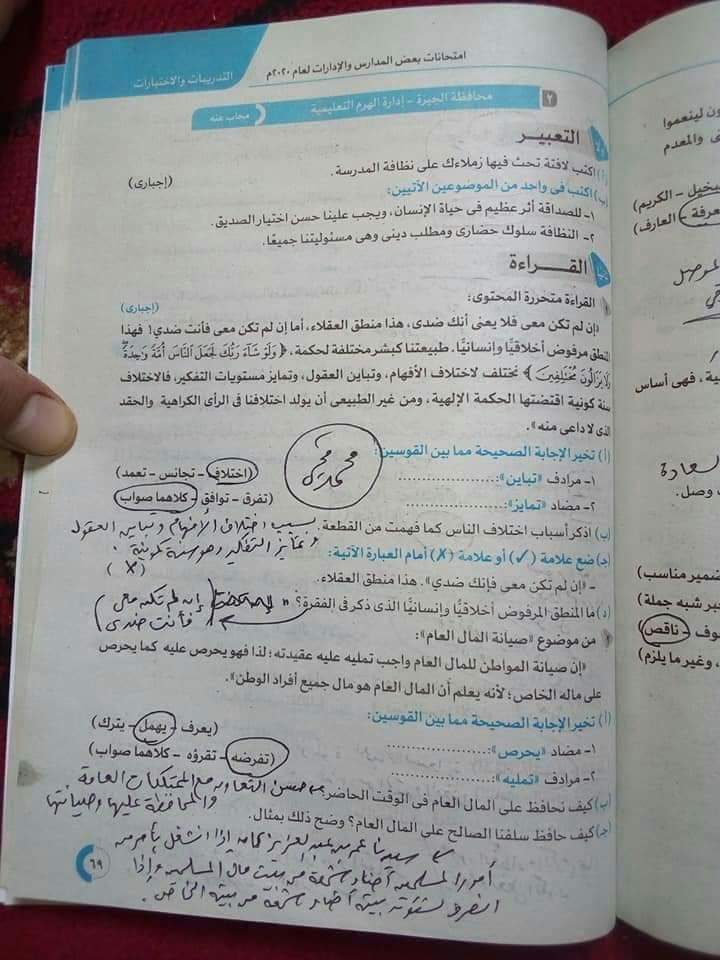 امتحانات بعض المدارس والإدارات لعام ٢٠٢٠م
التدريبات والاختبارات
٢ محافظة الجيزة - إدارة الهرم التعليمية
مجاب عنه
التعبير
(أ) اكتب لافتة تحث فيها زملاءك على نظافة المدرسة.
(ب) اكتب فى واحد من الموضوعين الآتيين: (إجبارى)
١- للصداقة أثر عظيم فى حياة الإنسان، ويجب علينا حسن اختيار الصديق.
٢- النظافة سلوك حضارى ومطلب دينى وهى مسئوليتنا جميعًا.
القراءة
القراءة متحررة المحتوى: (إجبارى)
«إن لم تكن معى فلا يعنى أنك ضدى، هذا منطق العقلاء، أما إن لم تكن معى فأنت ضدي! فهذا
منطق مرفوض أخلاقيًّا وإنسانيًّا. طبيعتنا كبشر مختلفة لحكمة، ﴿ وَلَوْ شَاءَ رَبُّكَ لَجَعَلَ النَّاسَ أُمَّةً وَاحِدَةً
وَلَا يَزَالُونَ مُخْتَلِفِينَ ﴾ نختلف لاختلاف الأفهام، وتباين العقول، وتمايز مستويات التفكير، فالاختلاف
سنة كونية اقتضتها الحكمة الإلهية، ومن غير الطبيعى أن يولد اختلافنا فى الرأى الكراهية والحقد
الذى لا داعى منه».
(أ) تخير الإجابة الصحيحة مما بين القوسين:
١- مرادف «تباين»: .................... (اختلاف - تجانس - تعمد)
٢- مضاد «تمايز»: .................... (تفرق - توافق - كلاهما صواب)
(ب) اذكر أسباب اختلاف الناس كما فهمت من القطعة. بسبب اختلاف الأفهام وتباين العقول
وتمايز التفكير وهو سنة كونية.
(جـ) ضع علامة (✓) أو علامة (✗) أمام العبارة الآتية:
- «إن لم تكن معى فإنك ضدي». هذا منطق العقلاء. (✗)
(د) ما المنطق المرفوض أخلاقيًّا وإنسانيًّا الذى ذكر فى الفقرة؟ إن لم تكن معى
فأنت ضدى
من موضوع «صيانة المال العام»:
«إن صيانة المواطن للمال العام واجب تمليه عليه عقيدته؛ لذا فهو يحرص عليه كما يحرص
على ماله الخاص؛ لأنه يعلم أن المال العام هو مال جميع أفراد الوطن».
(أ) تخير الإجابة الصحيحة مما بين القوسين:
١- مضاد «يحرص»: .................... (يعرف - يهمل - يترك)
٢- مرادف «تمليه»: .................... (تفرضه - تقرؤه - كلاهما صواب)
(ب) كيف نحافظ على المال العام فى الوقت الحاضر؟ حسن التعاون مع الممتلكات العامة
والمحافظة عليها وصيانتها
(جـ) كيف حافظ سلفنا الصالح على المال العام؟ وضح ذلك بمثال.
سيدنا عمر بن عبد العزيز كان إذا انشغل بأمر من
أمور المسلمين أضاء شمعة من بيت مال المسلمين وإذا
انصرف لشئون بيته أضاء شمعة من بيته الخاص.
٦٩
ون لينعموا
ى والمعدم
بخيل - الكريم)
معرفة - العارف)
ية، فهى أساس
السعادة
وصل.
ضمير مناسب)
خبر شبه جملة)
وف - ناقص)
، وغير ما يلزم)